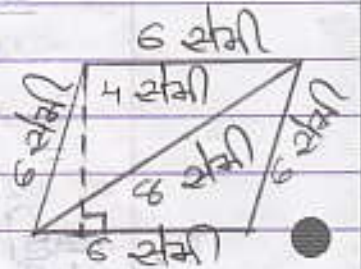 6 सेमी
4 सेमी
6 सेमी
8 सेमी
6 सेमी
6 सेमी